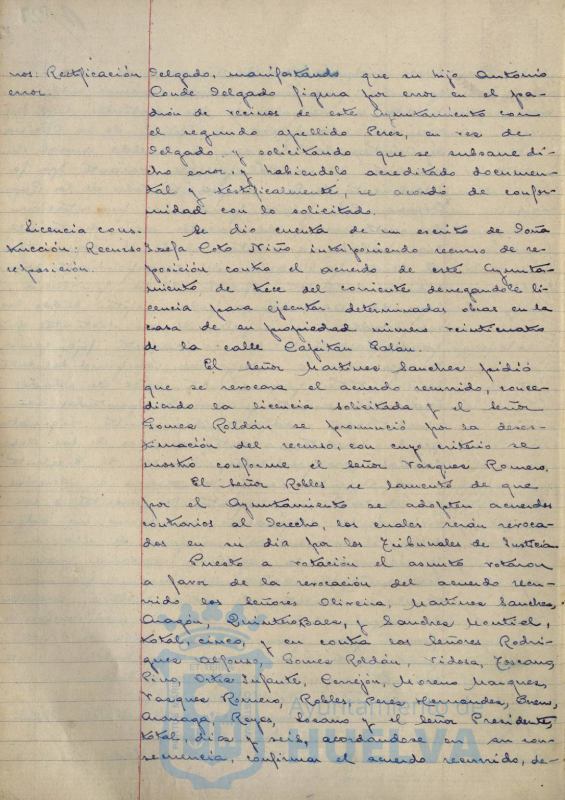 nos: Rectificación
error.
Delgado, manifestando que su hijo Antonio
Conde Delgado figura por error en el pa-
drón de vecinos de este Ayuntamiento con
el segundo apellido Perez, en vez de
Delgado, y solicitando que se subsane di-
cho error, y habiendolo acreditado documen-
tal y testificalmente, se acordó de confor-
midad con lo solicitado.
Licencia cons-
trucción: Recurso
reposición.
Se dio cuenta de un escrito de Doña
Josefa Coto Niño interponiendo recurso de re-
posición contra el acuerdo de este Ayunta-
miento de trece del corriente denegandole li-
cencia para ejecutar determinadas obras en la
casa de su propiedad número veinticuatro
de la calle Capitán Galán.
El Señor Martinez Sanchez pidió
que se revocara el acuerdo recurrido, conce-
diendo la licencia solicitada y el Señor
Gomez Roldán se pronunció por la deses-
timación del recurso, con cuyo criterio se
mostró conforme el Señor Vazquez Romero.
El Señor Robles se lamentó de que
por el Ayuntamiento se adopten acuerdos
contrarios al Derecho, los cuales serán revoca-
dos en su dia por los Tribunales de Justicia.
Puesto a votación el asunto votaron
a favor de la revocación del acuerdo recu-
rrido los Señores Oliveira, Martinez Sanchez,
Aragón, Quintero Baez, y Sanchez Montiel,
total, cinco, y en contra los Señores Rodri-
guez Alfonso, Gomez Roldán, Vidosa, Toscano,
Pino, Ortiz Infante, Cerrejón, Moreno Marquez,
Vazquez Romero, Robles, Perez Hernandez, Bueno,
Reyes, Lozano y el Señor Presidente,
total diez y seis, acordándose en su con-
secuencia, confirmar el acuerdo recurrido, de-
Ayuntamiento de
HUELVA